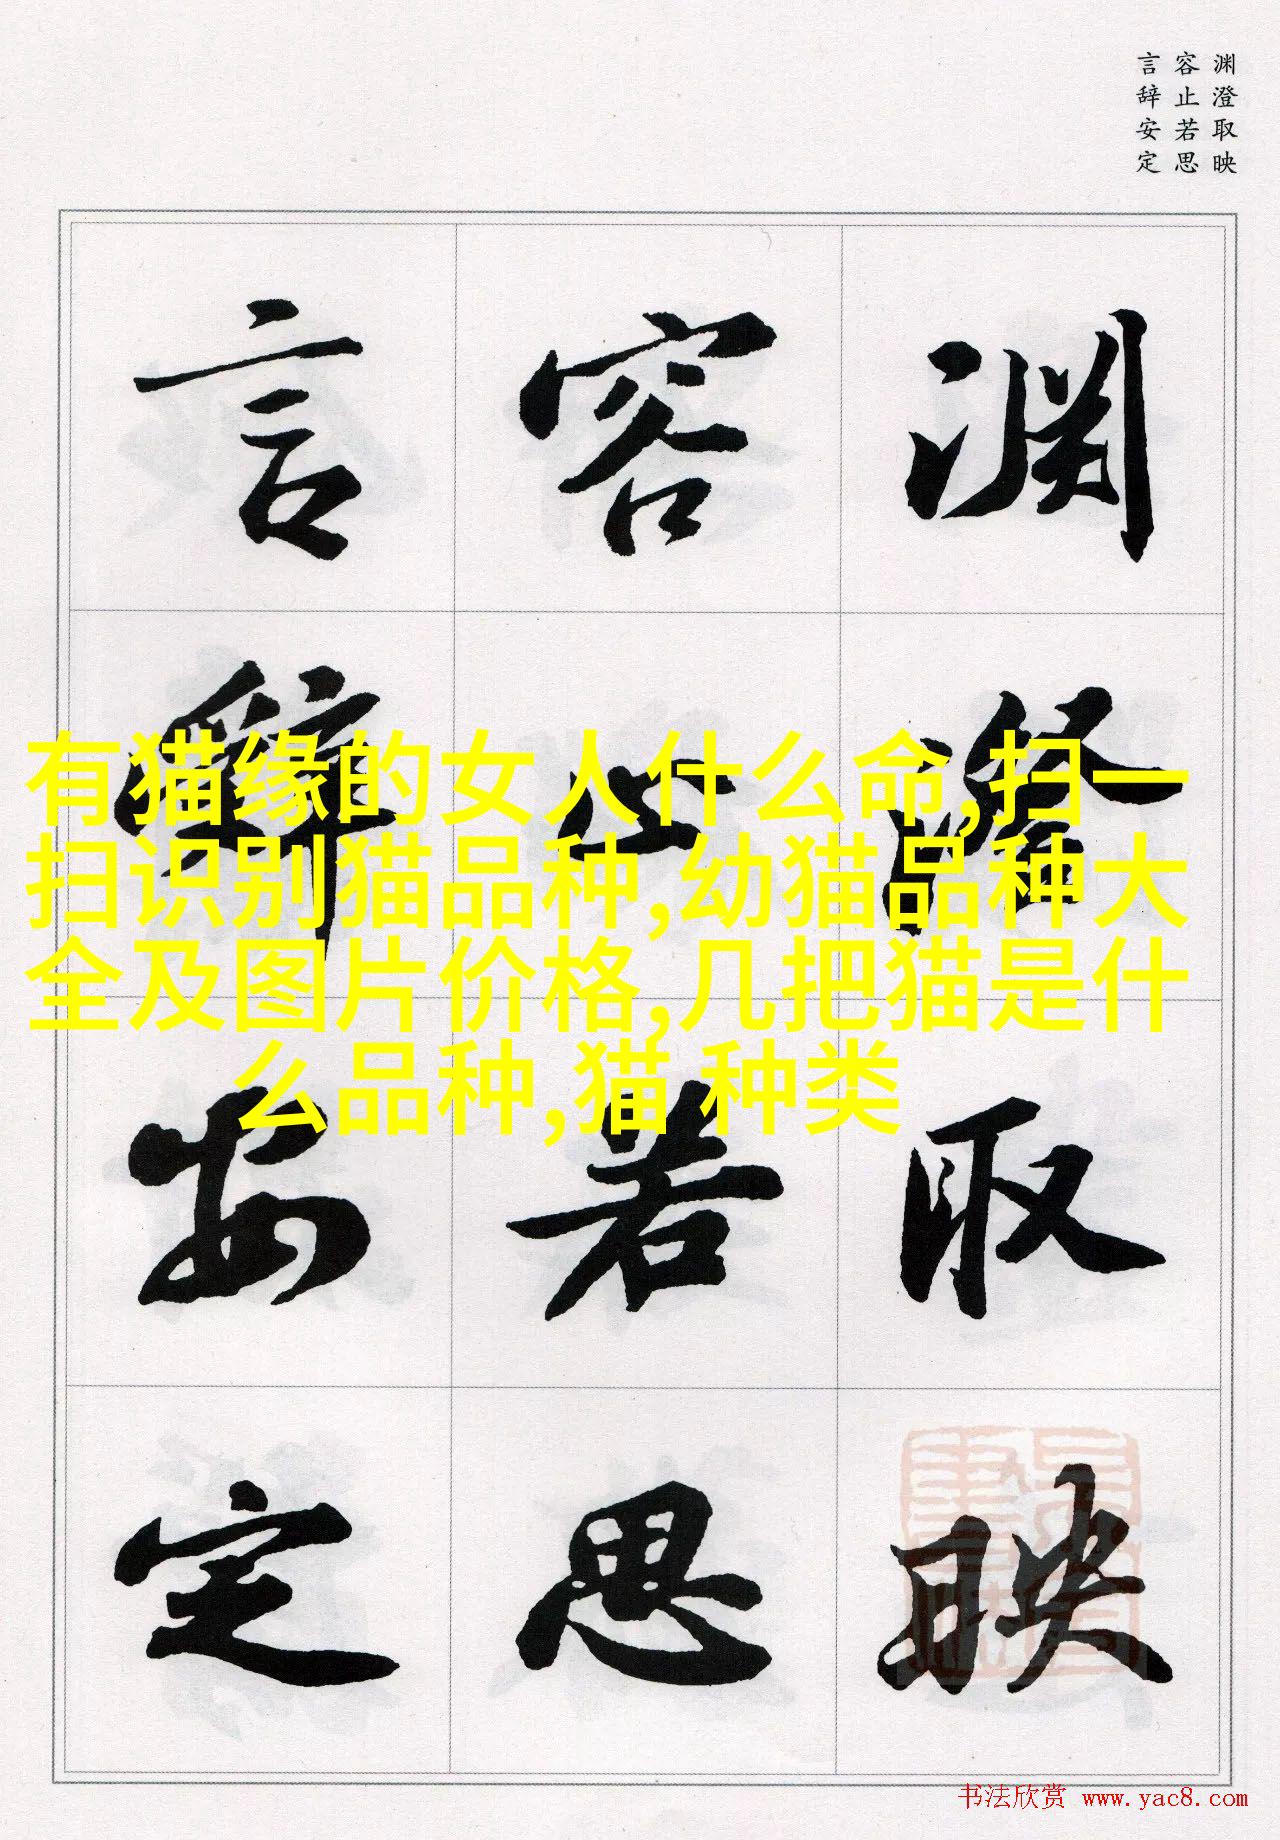 渊澄取映
容止若思
言辞安定
渊澄取映
容止若思
言辞安定
有猫缘的女人什么命,扫一
扫识别猫品种,幼猫品种大
全及图片价格,几把猫是什
么品种,猫 种类
书法欣赏 www.yac8.com